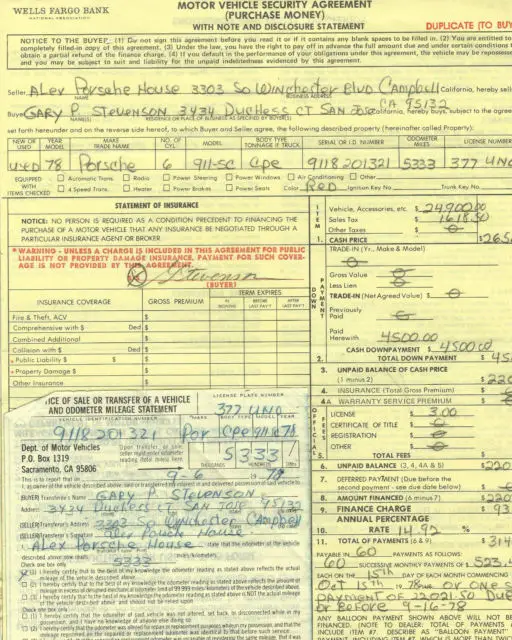 WELLS FARGO BANK
NATIONAL ASSOCIATION
MOTOR VEHICLE SECURITY AGREEMENT
(PURCHASE MONEY)
WITH NOTE AND DISCLOSURE STATEMENT
DUPLICATE (TO BUY
NOTICE TO THE BUYER: (1) Do not sign this agreement before you read it or if it contains any blank spaces to be filled in. (2) You are entitled to
completely filled-in copy of this agreement. (3) Under the law, you have the right to pay off in advance the full amount due and under certain conditions
obtain a partial refund of the finance charge. (4) If you default in the performance of your obligations under this agreement, the vehicle may be repossessed
and you may be subject to suit and liability for the unpaid indebtedness evidenced by this agreement.
Seller, Alex Porsche House 3303 So Winchester Blvd Campbell California, hereby sell
NAME BUSINESS ADDRESS
CA 95132
Buyer GARY P STEVENSON 3434 Duchess CT SAN JOSE California, hereby buys, subject to the agree
NAME(S) RESIDENCE OR PLACE OF BUSINESS AS SPECIFIED BY BUYER(S)
set forth hereunder and on the reverse side hereof, to which Buyer and Seller agree, the following described property (hereinafter called Property):
NEW OR USED YEAR MODEL MAKE TRADE NAME NO. OF CYL MODEL BODY TYPE TONNAGE IF TRUCK SERIAL OR I.D. NUMBER ODOMETER MILES LICENSE NUMBER
USED 78 Porsche 6 911-SC Cpe 9118201321 5333 377 UNO
EQUIPPED WITH ITEMS CHECKED
Automatic Trans. Radio Power Steering Power Windows Air Conditioning Other
4 Speed Trans. Heater Power Brakes Power Seats Color RED Ignition Key No. Trunk Key No.
STATEMENT OF INSURANCE
NOTICE: NO PERSON IS REQUIRED AS A CONDITION PRECEDENT TO FINANCING THE
PURCHASE OF A MOTOR VEHICLE THAT ANY INSURANCE BE NEGOTIATED THROUGH A
PARTICULAR INSURANCE AGENT OR BROKER.
*WARNING - UNLESS A CHARGE IS INCLUDED IN THIS AGREEMENT FOR PUBLIC
LIABILITY OR PROPERTY DAMAGE INSURANCE, PAYMENT FOR SUCH COVER-
AGE IS NOT PROVIDED BY THIS AGREEMENT.
Stevenson
(BUYER)
INSURANCE COVERAGE GROSS PREMIUM TERM EXPIRES
IN MONTHS BEFORE LAST PAY'T AFTER LAST PAY'T
Fire & Theft, ACV $
Comprehensive with $ Ded $
Combined Additional $
Collision with $ Ded $
*Public Liability $ $ $
*Property Damage $ $
Other Insurance $
ITEM
1. Vehicle, Accessories, etc. $ 24,900.00
Sales Tax $ 1618.50
Other Taxes $ 0
CASH PRICE $ 265
DOWN PAYMENT
TRADE-IN (Yr., Make & Model)
Gross Value $ 0
Less Lien $ 0
TRADE-IN (Net Agreed Value) $ 0
Previously Paid $ 0
Paid Herewith $ 4500.00
CASH DOWNPAYMENT $ 4500.00
2. TOTAL DOWN PAYMENT $ 45
3. UNPAID BALANCE OF CASH PRICE
(1 minus 2) $ 220
4. INSURANCE (Total Gross Premium) $
4A WARRANTY SERVICE PREMIUM $
OFFICIALS
LICENSE $ 3.00
CERTIFICATE OF TITLE $ 0
REGISTRATION $ 0
OTHER $ 0
5. TOTAL FEES $
6. UNPAID BALANCE (3, 4, 4A & 5) $ 220
7. DEFERRED PAYMENT (Due before the
second payment - see due date below) $
8. AMOUNT FINANCED (6 minus 7) $ 220
9. FINANCE CHARGE $ 93
10. ANNUAL PERCENTAGE
RATE 14.92 %
11. TOTAL OF PAYMENTS (8 & 9) $ 314
PAYABLE IN 60 PAYMENTS AS FOLLOWS:
60 SUCCESSIVE MONTHLY PAYMENTS OF $ 523.
EACH ON THE 15th DAY OF EACH MONTH COMMENCING
Oct 15th 1978 or ONE
PAYMENT OF 22021.50 Due
or Before 9-16-78
ANY BALLOON PAYMENT SHOWN ABOVE WILL NOT BE
FINANCED. (NOTE TO DEALER: TOTAL OF PAYMENTS
INCLUDE ITEM #7. DESCRIBE AS "BALLOON PAYMENT"
TICE OF SALE OR TRANSFER OF A VEHICLE
AND ODOMETER MILEAGE STATEMENT
LICENSE PLATE NUMBER
377 UNO
VEHICLE IDENTIFICATION NUMBER MAKE BODY TYPE MODEL YEAR
9118201321 Por Cpe 911-SC 78
Dept. of Motor Vehicles
P.O. Box 1319
Sacramento, CA 95806
Upon transfer, or sale,
seller must enter odometer
reading (total miles) here
5333
THOUSANDS HUNDREDS
This is to report that on 9-6 1978
(BUYER) Transferee's Name GARY P STEVENSON
Address 3434 Duchess CT SAN JOSE 95132
(SELLER) Transferor's Address 3303 So Winchester Campbell
(SELLER) Transferor's Signature Alex Porsche House
I, Alex Porsche House state that the odometer of the vehicle
described above now reads 5333
Check one only
(1) I hereby certify that to the best of my knowledge the odometer reading as stated above reflects the actual
mileage of the vehicle described above.